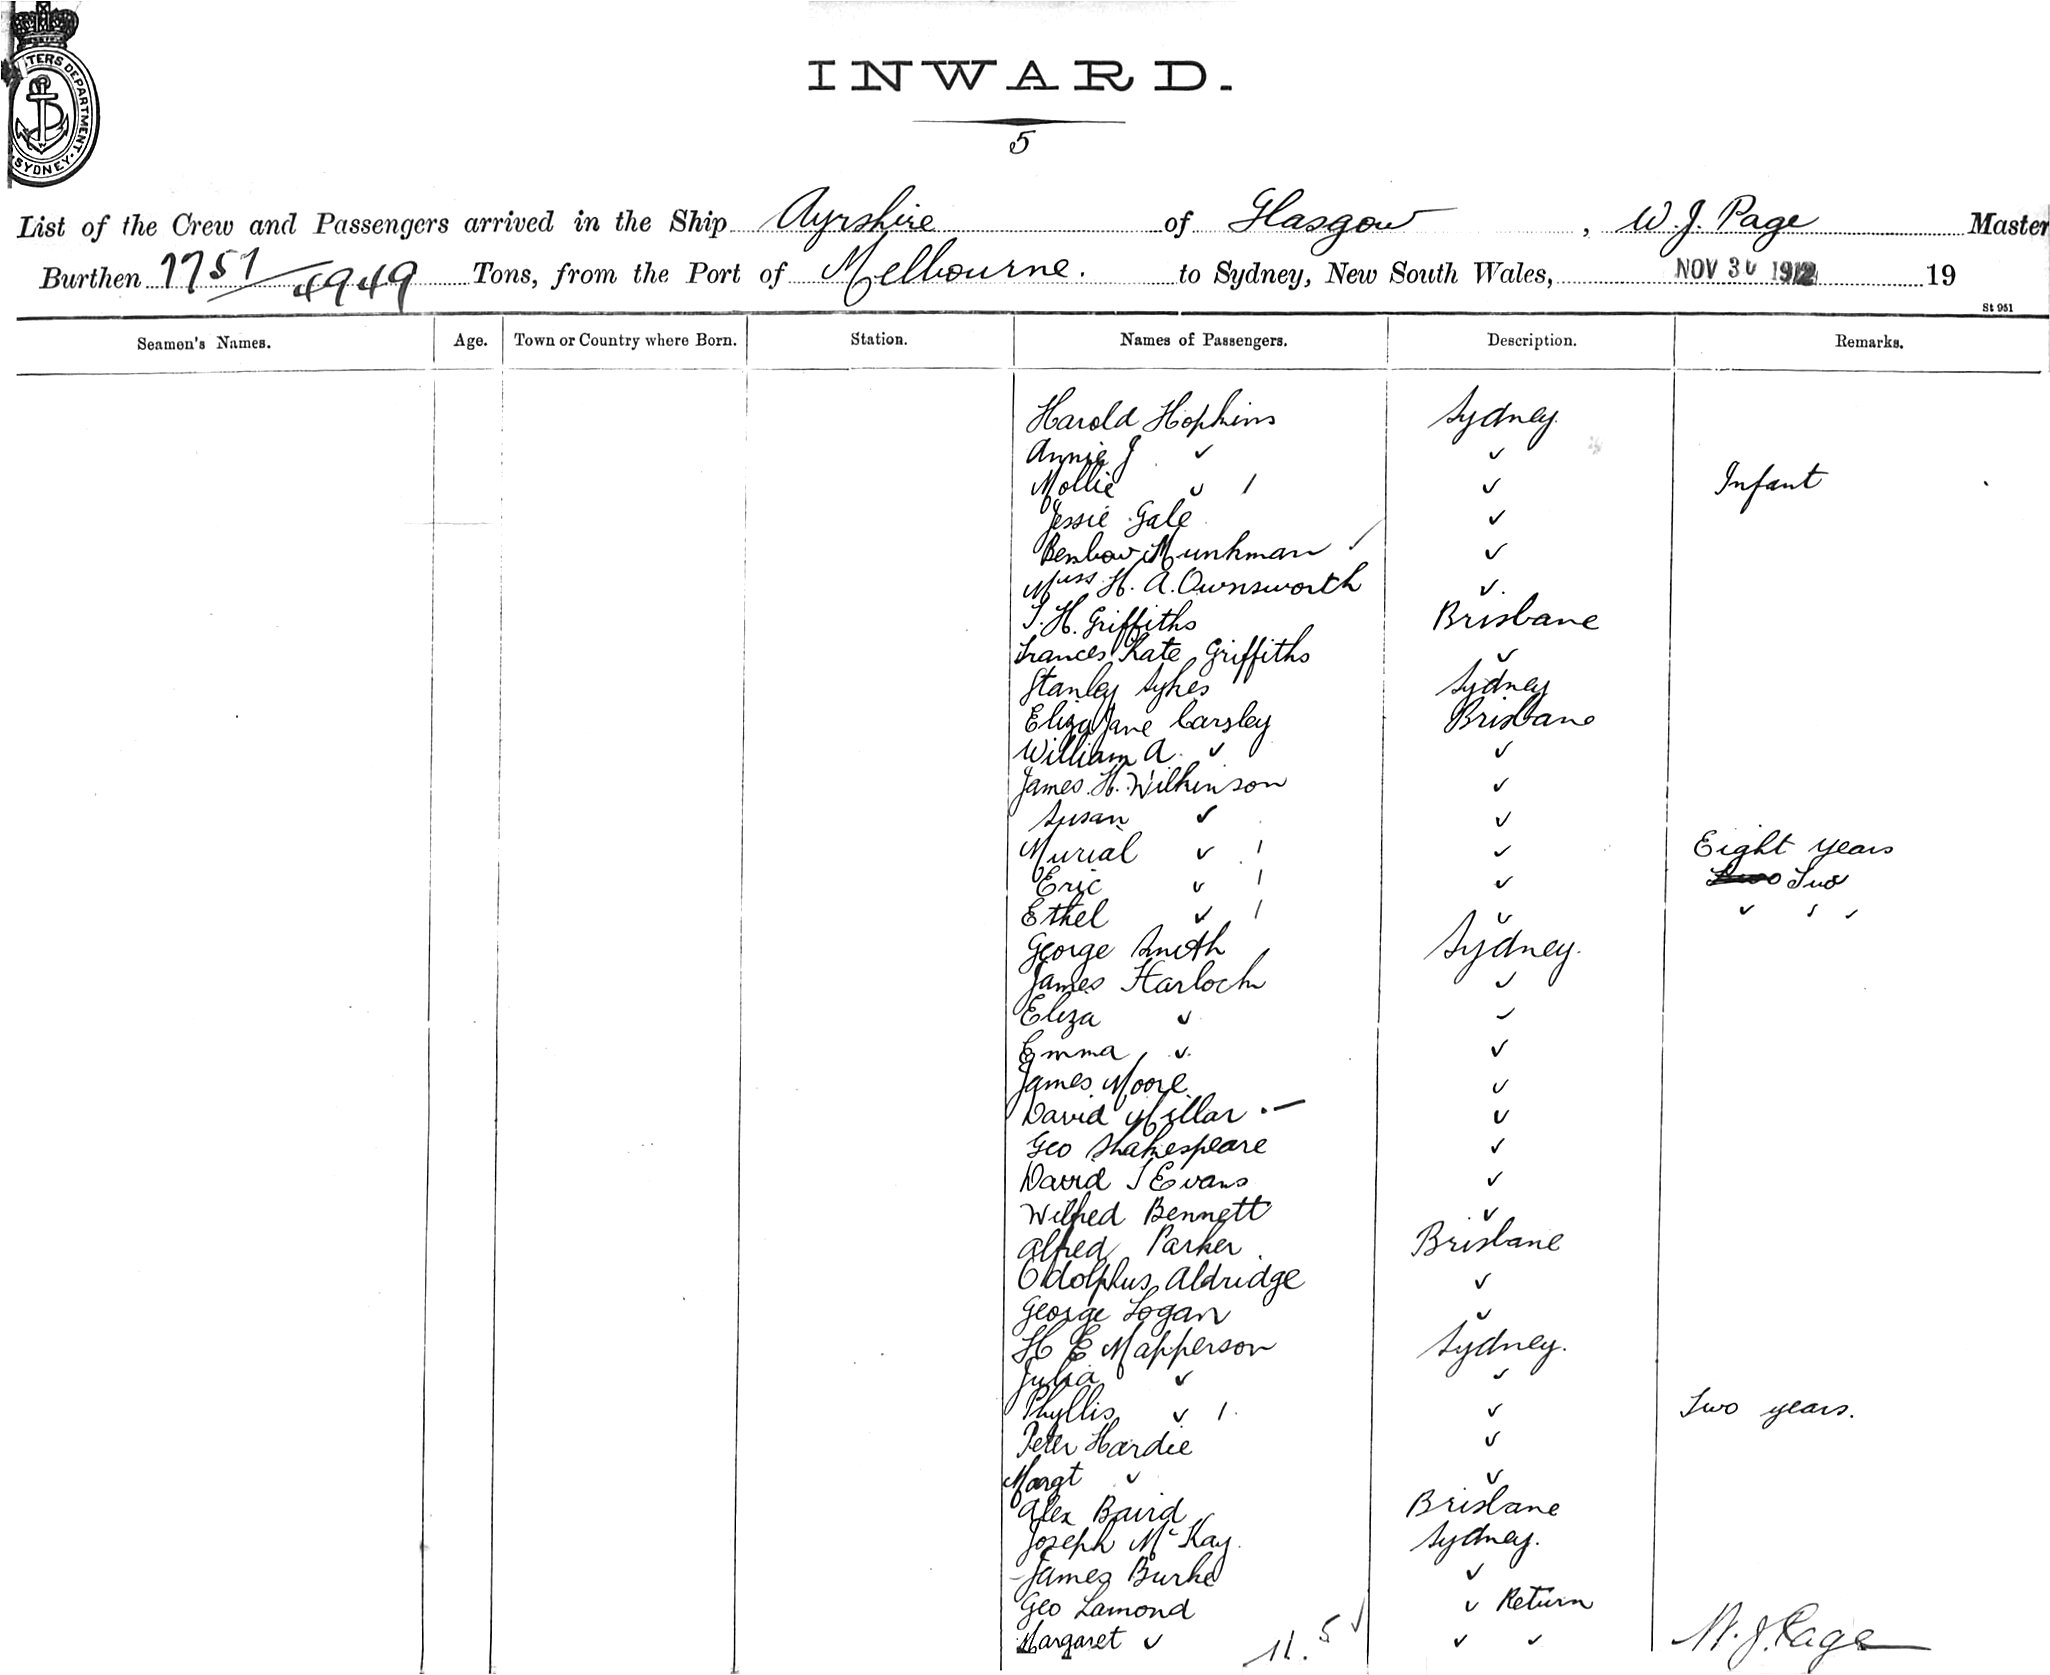 TERS DEPARTMENT
SYDNEY
INWARD.
5
List of the Crew and Passengers arrived in the Ship Ayrshire of Glasgow , W. J. Page Master
Burthen 7751/4949 Tons, from the Port of Melbourne. to Sydney, New South Wales, NOV 30 1912 19
St 951
Seamen's Names. Age. Town or Country where Born. Station. Names of Passengers. Description. Remarks.
Harold Hopkins Sydney.
Annie J ✓ ✓
Mollie ✓ 1 ✓ Infant
Jessie Gale ✓
Benbow Munkman ✓ ✓
Miss H. A. Ownsworth ✓.
T. H. Griffiths Brisbane
Frances Kate Griffiths ✓
Stanley Sykes Sydney
Eliza Jane Carsley Brisbane
William A. ✓ ✓
James H. Wilkinson ✓
Susan ✓ ✓
Murial ✓ 1 ✓ Eight years
Eric ✓ 1 ✓ Two
Ethel ✓ 1 ✓ ✓ ✓ ✓
George Smith Sydney.
James Harloch ✓
Eliza ✓ ✓
Emma ✓ ✓
James Moore ✓
David Millar ✓
Geo Shakespeare ✓
David J Evans ✓
Wilfred Bennett ✓
Alfred Parker Brisbane
Odolphus Aldridge ✓
George Logan ✓
H E Mapperson Sydney.
Julia ✓ ✓
Phyllis ✓ 1. ✓ Two years.
Peter Hardie ✓
Margt ✓ ✓
Alex Baird Brisbane
Joseph McKay Sydney.
James Burke ✓
Geo Lamond ✓ Return
Margaret ✓ ✓ ✓ W. J. Page